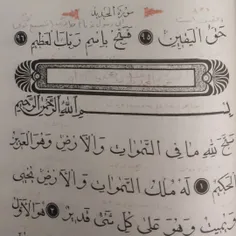 سورة الحديد
حق اليقين ٩٥ فسبح باسم ربك العظيم ٩٦
بسم الله الرحمن الرحيم
سبح لله ما في السموات والارض وهو العزيز
الحكيم ١ له ملك السموات والارض يحيى
ويميت وهو على كل شئ قدير ٢ هو الاول